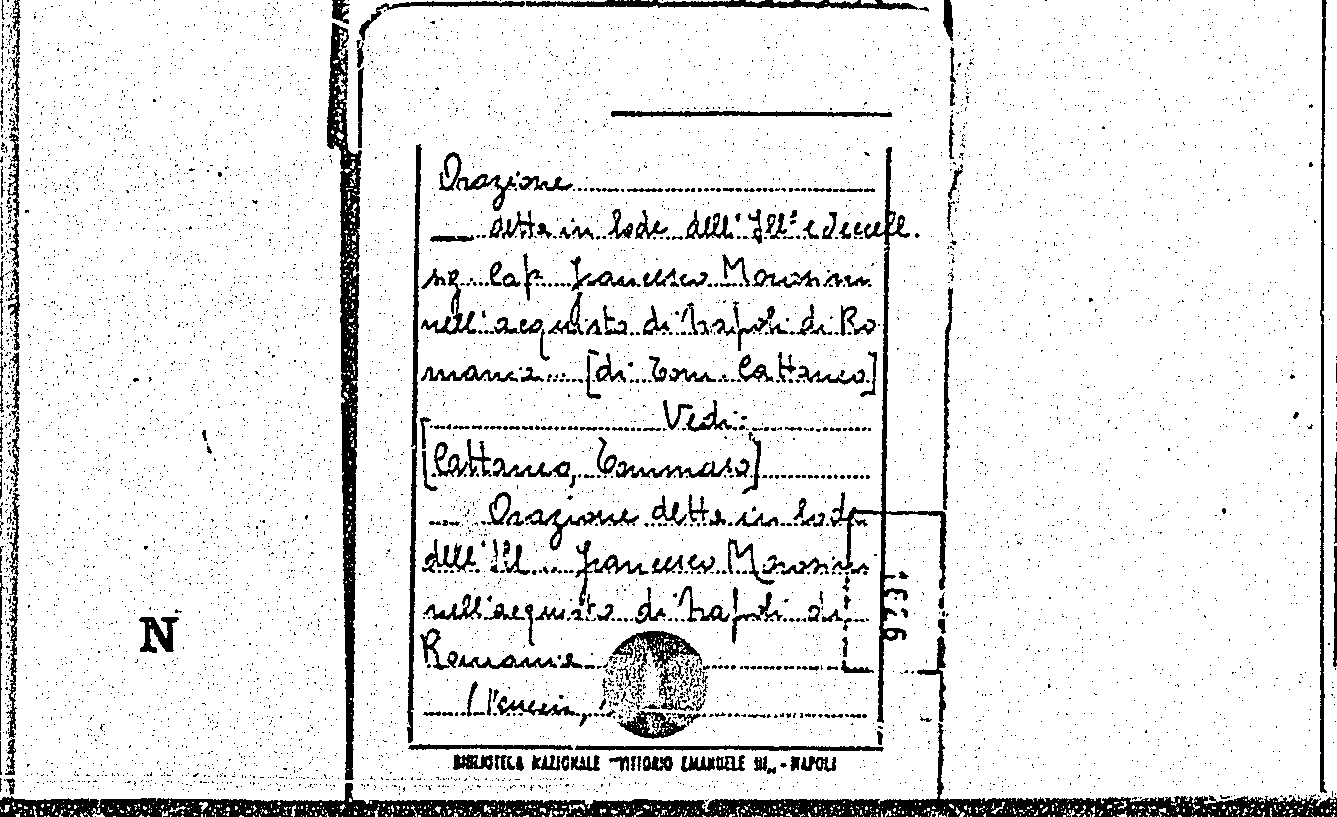 Orazione
detta in lode dell' Ill.a e Eccell.
sig. Cap. Francesco Morosini
nell'acquisto di Napoli di Ro
mania... [di Tom. Cattaneo]
Vedi:
[Cattaneo, Tommaso]
... Orazione detta in lode
dell'Ill... Francesco Morosini
nell'acquisto di Napoli di
Romania
(Venezia,
BIBLIOTECA NAZIONALE "VITTORIO EMANUELE III" - NAPOLI
N